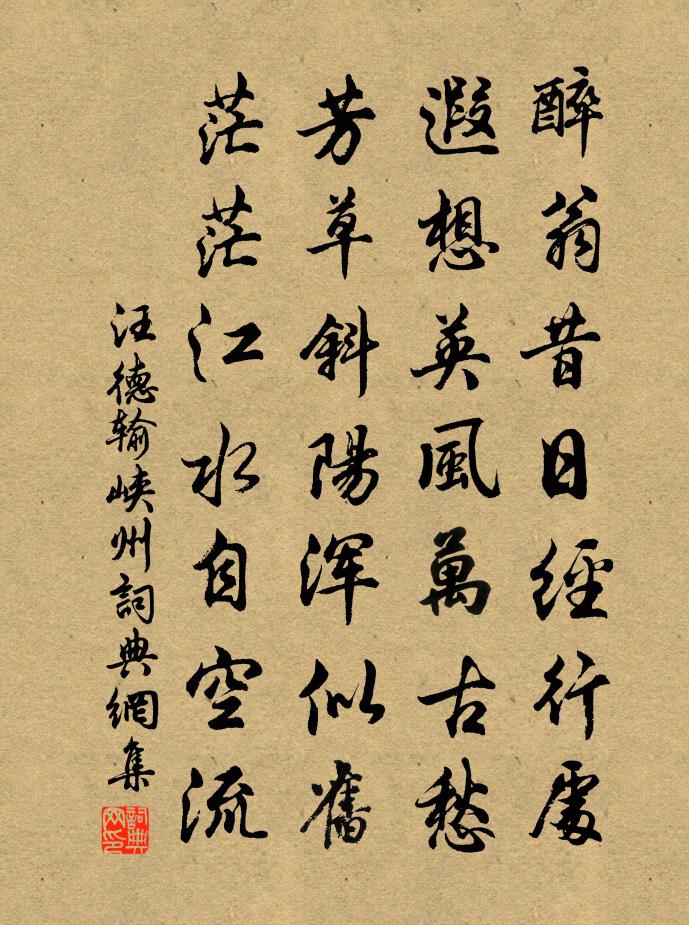 醉翁昔日經行處
遐想英風萬古愁
芳草斜陽渾似舊
茫茫江水自空流
汪德輸峽州詞典網集
詞典網印